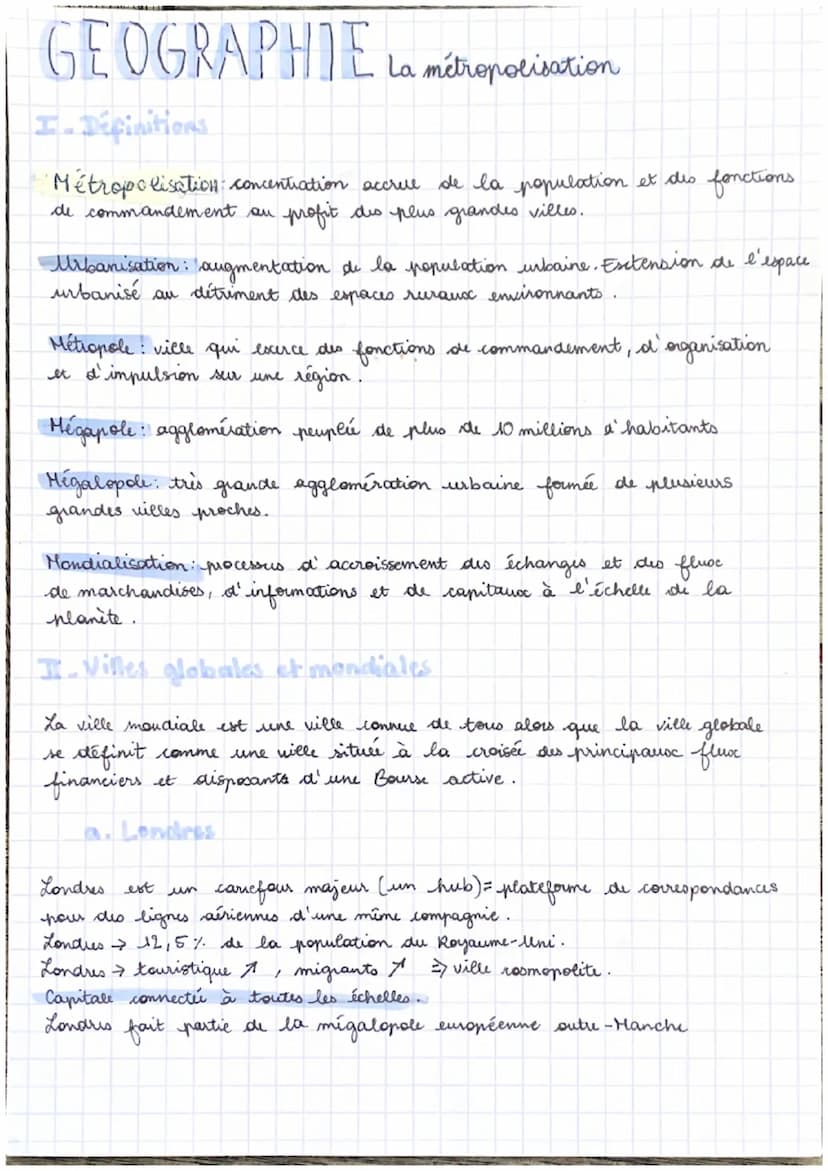 GEOGRAPHIE La métropolisation
I - Définitions
Métropolisation : concentration accrue de la population et des fonctions
de commandement au profit des plus grandes villes.
Urbanisation : augmentation de la population urbaine. Extension de l'espace
urbanisé au détriment des espaces ruraux environnants.
Métropole : ville qui exerce des fonctions de commandement, d'organisation
et d'impulsion sur une région.
Mégapole : agglomération peuplée de plus de 10 millions d'habitants
Mégalopole : très grande agglomération urbaine formée de plusieurs
grandes villes proches.
Mondialisation : processus d'accroissement des échanges et des flux
de marchandises, d'informations et de capitaux à l'échelle de la
planète.
II - Villes globales et mondiales
La ville mondiale est une ville connue de tous alors que la ville globale
se définit comme une ville située à la croisée des principaux flux
financiers et disposants d'une Bourse active.
a. Londres
Londres est un carrefour majeur (un hub) = plateforme de correspondances
pour des lignes aériennes d'une même compagnie.
Londres → 12,5 % de la population du Royaume-Uni.
Londres → touristique ↗, migrants ↗ ⇒ ville cosmopolite.
Capitale connectée à toutes les échelles.
Londres fait partie de la mégalopole européenne outre-Manche